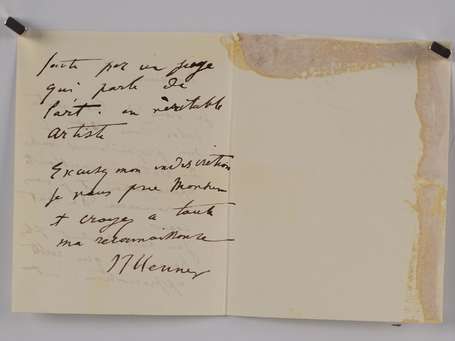 faite par un juge
qui parle de
l'art. en véritable
artiste
Excusez mon indiscretion
je vous prie Monsieur
et croyez a toute
ma reconnaissance
JJ Henner